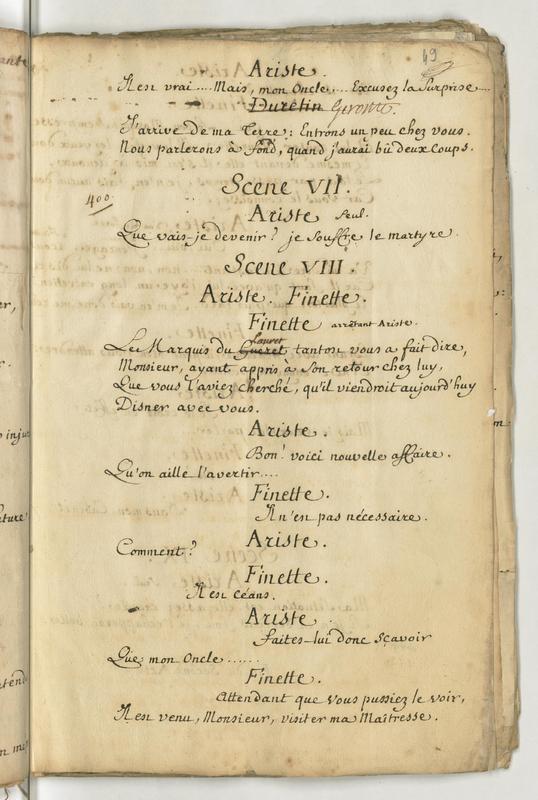 49
Ariste.
Il est vrai.... Mais, mon Oncle.... Excusez la Surprise....
Duretin Geronte.
J'arrive de ma Terre: Entrons un peu chez vous.
Nous parlerons à fond, quand j'aurai bû deux coups.
Scene VII.
400
Ariste seul.
Que vais-je devenir? je souffre le martyre.
Scene VIII.
Ariste. Finette.
Finette arrêtant Ariste.
Lauret
Le Marquis du Gueret tantost vous a fait dire,
Monsieur, ayant appris à son retour chez luy,
Que vous l'aviez cherché, qu'il viendroit aujourd'huy
Disner avec vous.
Ariste.
Bon! voici nouvelle affaire.
Qu'on aille l'avertir....
Finette.
Il n'en pas nécessaire.
Ariste.
Comment?
Finette.
Il est céans.
Ariste.
faites-lui donc sçavoir
Que mon Oncle......
Finette.
Attendant que vous pussiez le voir,
Il est venu, Monsieur, visiter ma Maîtresse.